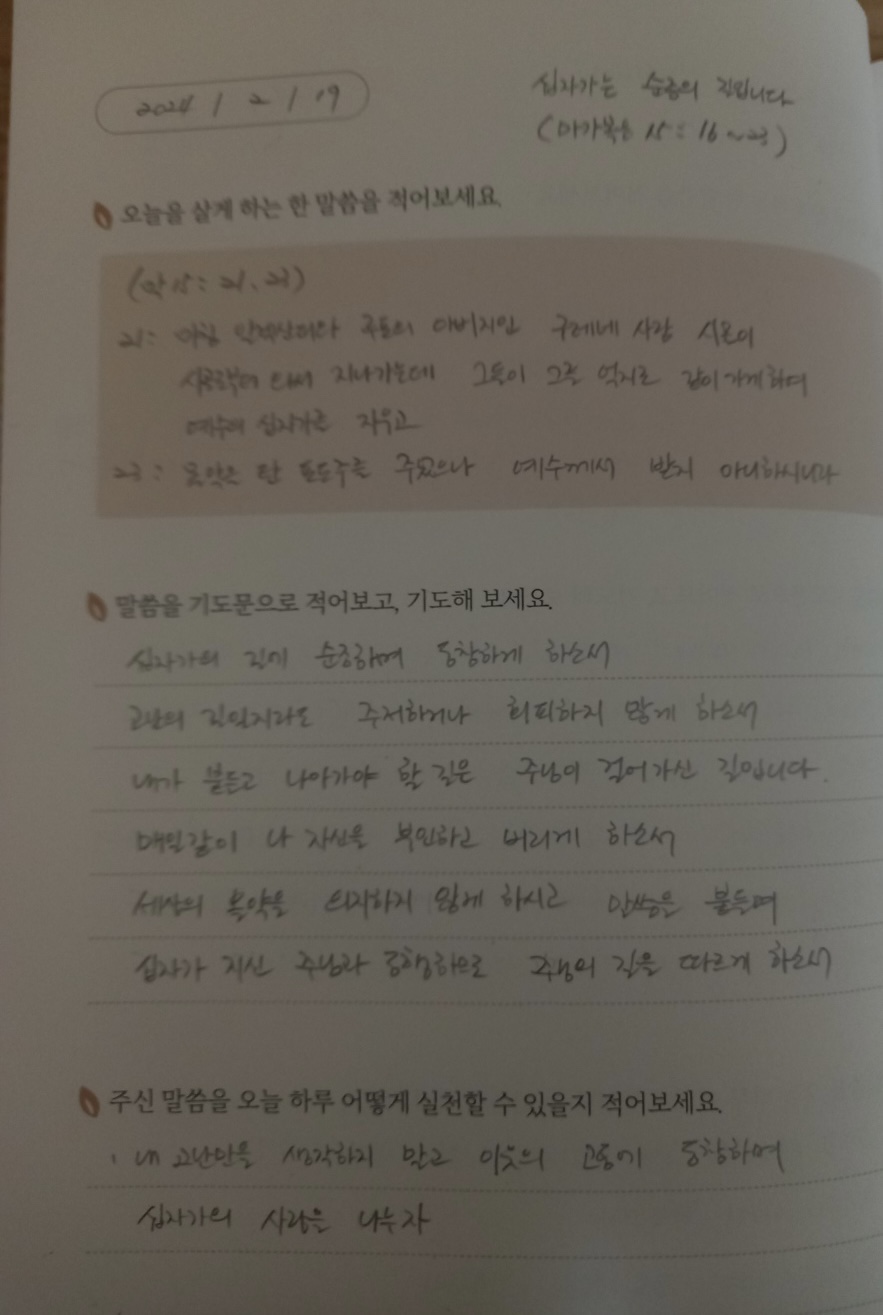 2024 / 2 / 19
십자가는 순종의 길입니다
(마가복음 15 : 16 ~ 23)
오늘을 살게 하는 한 말씀을 적어보세요.
(막 15 : 21, 23)
21 : 마침 알렉산더와 루포의 아버지인 구레네 사람 시몬이
시골로부터 와서 지나가는데 그들이 그를 억지로 같이 가게하여
예수의 십자가를 지우고
23 : 몰약을 탄 포도주를 주었으나 예수께서 받지 아니하시니라
말씀을 기도문으로 적어보고, 기도해 보세요.
십자가의 길에 순종하며 동참하게 하소서
고난의 길일지라도 주저하거나 회피하지 않게 하소서
내가 붙들고 나아가야 할 길은 주님이 걸어가신 길입니다.
매일같이 나 자신을 부인하고 버리게 하소서
세상의 몰약을 의지하지 않게 하시고 말씀을 붙들며
십자가 지신 주님과 동행함으로 주님의 길을 따르게 하소서
주신 말씀을 오늘 하루 어떻게 실천할 수 있을지 적어보세요.
· 내 고난만을 생각하지 말고 이웃의 고통에 동참하며
십자가의 사랑을 나누자